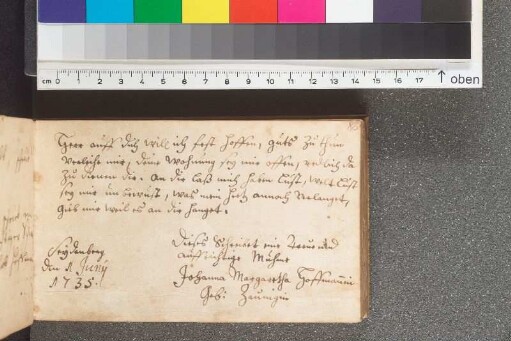 cm 0 1 2 3 4 5 6 7 8 9 10 11 12 13 14 15 16 17 oben
Herr auff dich will ich fest hoffen, guts zu thun
verleyhe mir, deine Wohnung sey mir offen, redlich da
zu dienen dir. An dir laß mich haben Lust, Welt Lust
sey mir un bewust, was mein Hertz annoch verlanget,
gieb mir weil es an dir hanget.
Seydenberg
den 1 Juny
1735.
Dieses Schreibet eine Treue und
auffrichtige Muhme
Johanna Margaretha Hoffmannin
Geb: